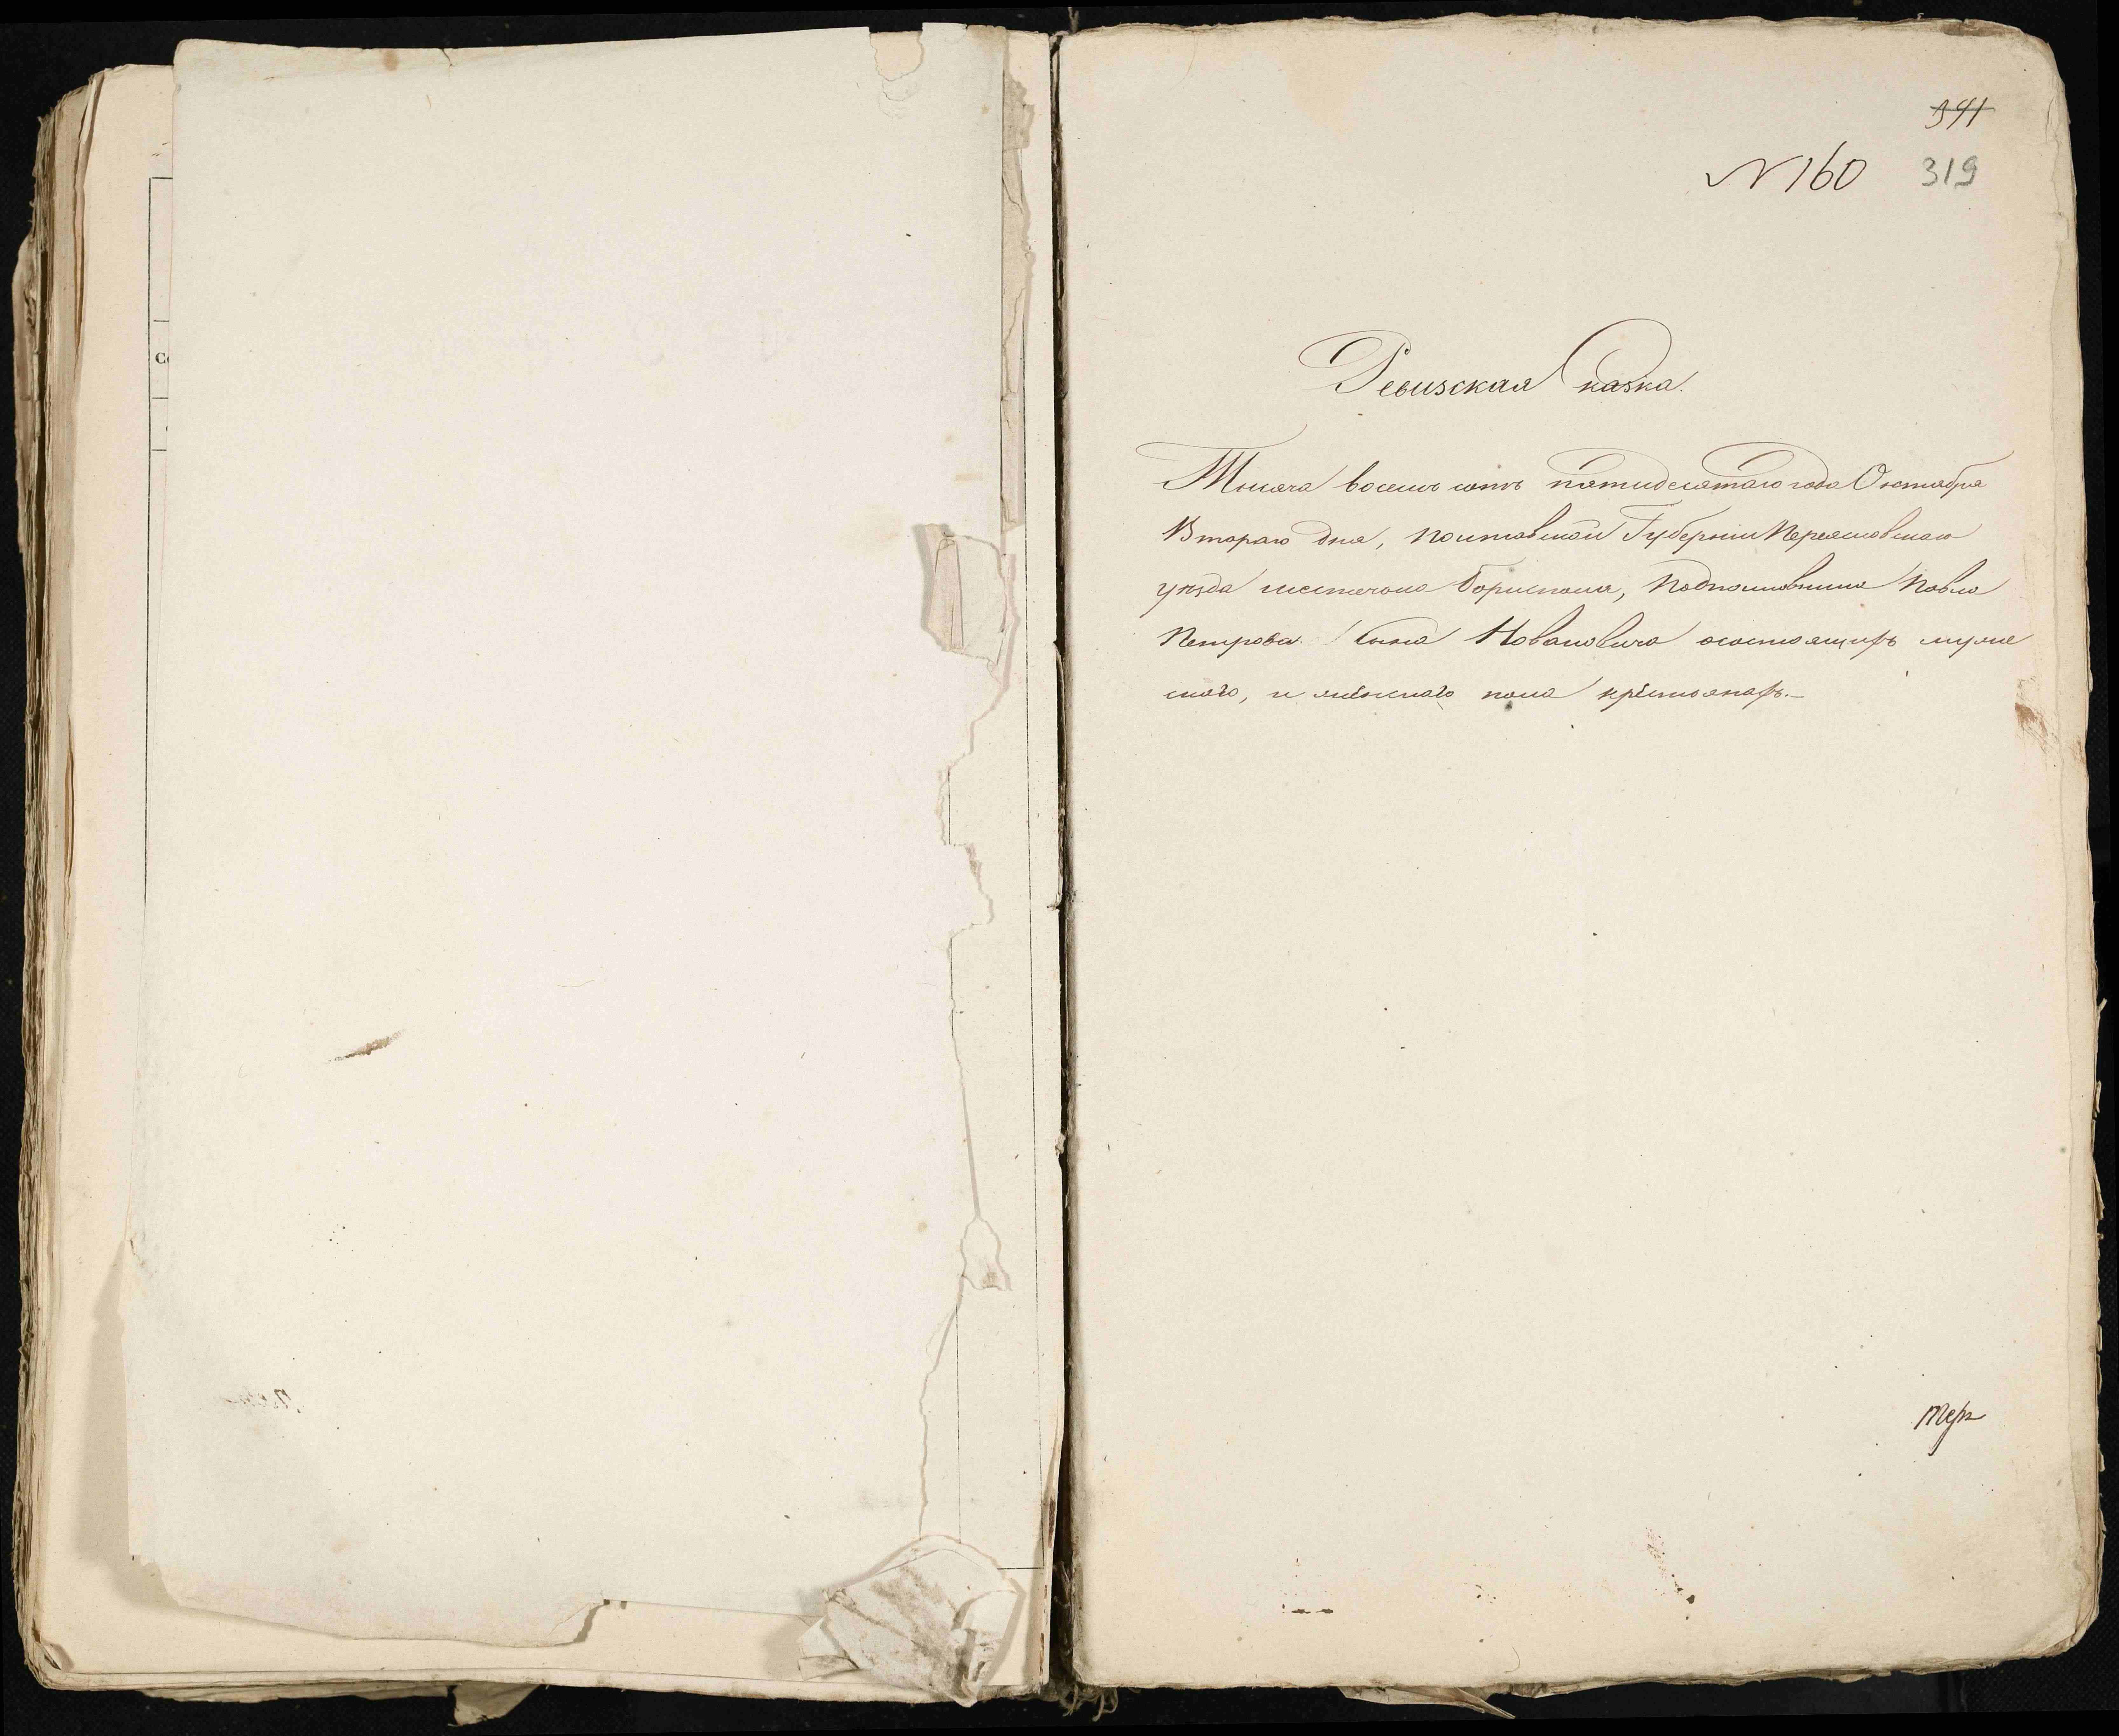 341
№ 160 319
Ревизская сказка.
Тысяча восемь сотъ пятидесятаго года Октября
Втораго дня, Полтавской Губерніи Переяславскаго
уѣзда местечка Борисполя, Подполковника Павла
Петрова Сына Новаковича осостоящихъ муже
скаго, и женскаго пола крестьянахъ.—